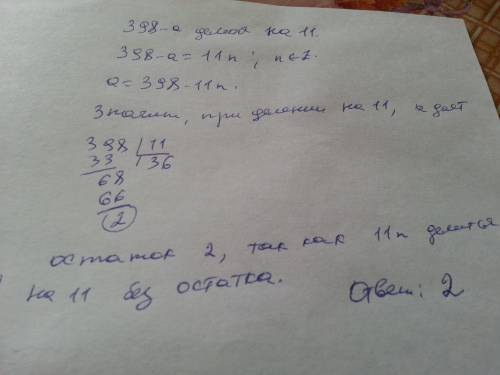 398-a делой на 11.
398-a = 11n ; n ∈ Z.
a = 398 - 11n.
Значит, при делении на 11, a даёт
398 | 11
33 | 36
68
66
2
остаток 2, так как 11n делится
на 11 без остатка.
Ответ: 2